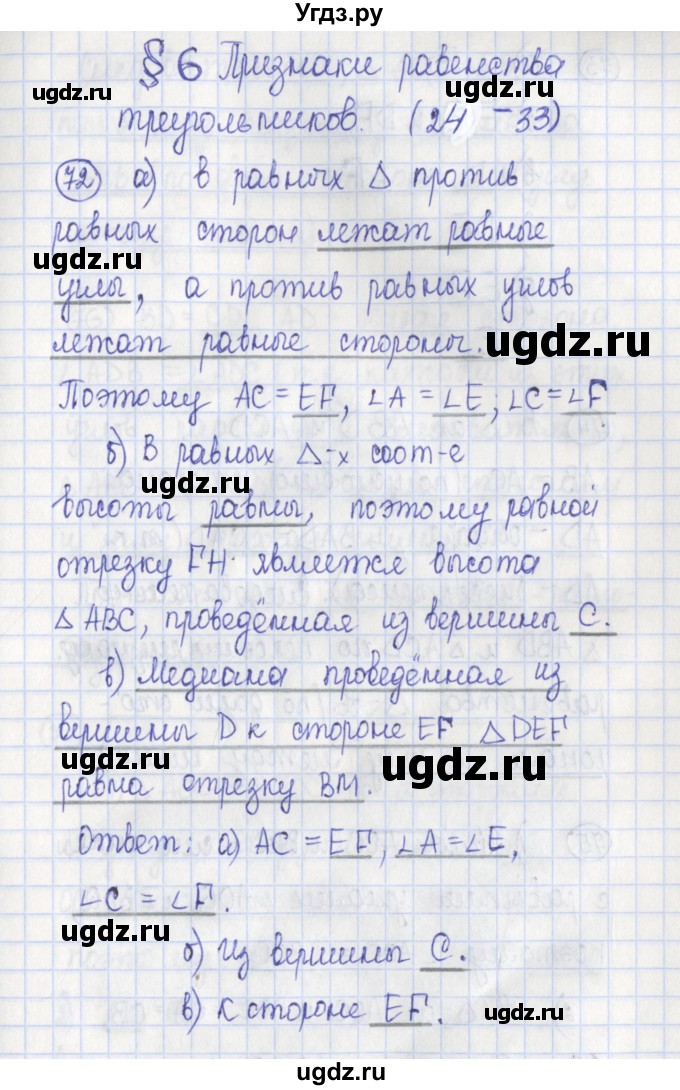 Угдз.ру
§ 6 Признаки равенства
треугольников. (24 – 33)
72 а) в равных Δ против
равных сторон лежат равные
углы, а против равных углов
лежат равные стороны.
Поэтому AC = EF, ∠A = ∠E; ∠C = ∠F
б) В равных Δ-х соот-е
высоты равны, поэтому равной
отрезку FH является высота
Δ ABC, проведённая из вершины C.
в) Медиана проведённая из
вершины D к стороне EF Δ DEF
равна отрезку BM.
Ответ: а) AC = EF, ∠A = ∠E,
∠C = ∠F.
б) Из вершины C.
в) К стороне EF.
ugdz.ru
ugdz.ru
ugdz.ru
ugdz.ru
ugdz.ru
ugdz.ru
ugdz.ru
ugdz.ru
ugdz.ru
ugdz.ru